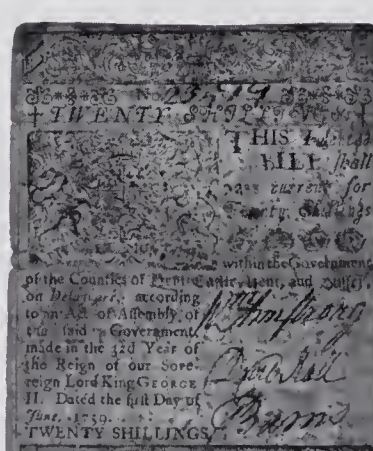 No 23.
TWENTY SHILLINGS
THIS
BILL shall
pass current for
Twenty Shillings
within the Government
of the Counties of Kent, and Sussex,
on Delaware, according
to an Act of Assembly, of
the said Government,
made in the 32d Year of
the Reign of our Sove-
reign Lord King GEORGE
II. Dated the first Day of
June, 1759.
TWENTY SHILLINGS
Wm Armstrong